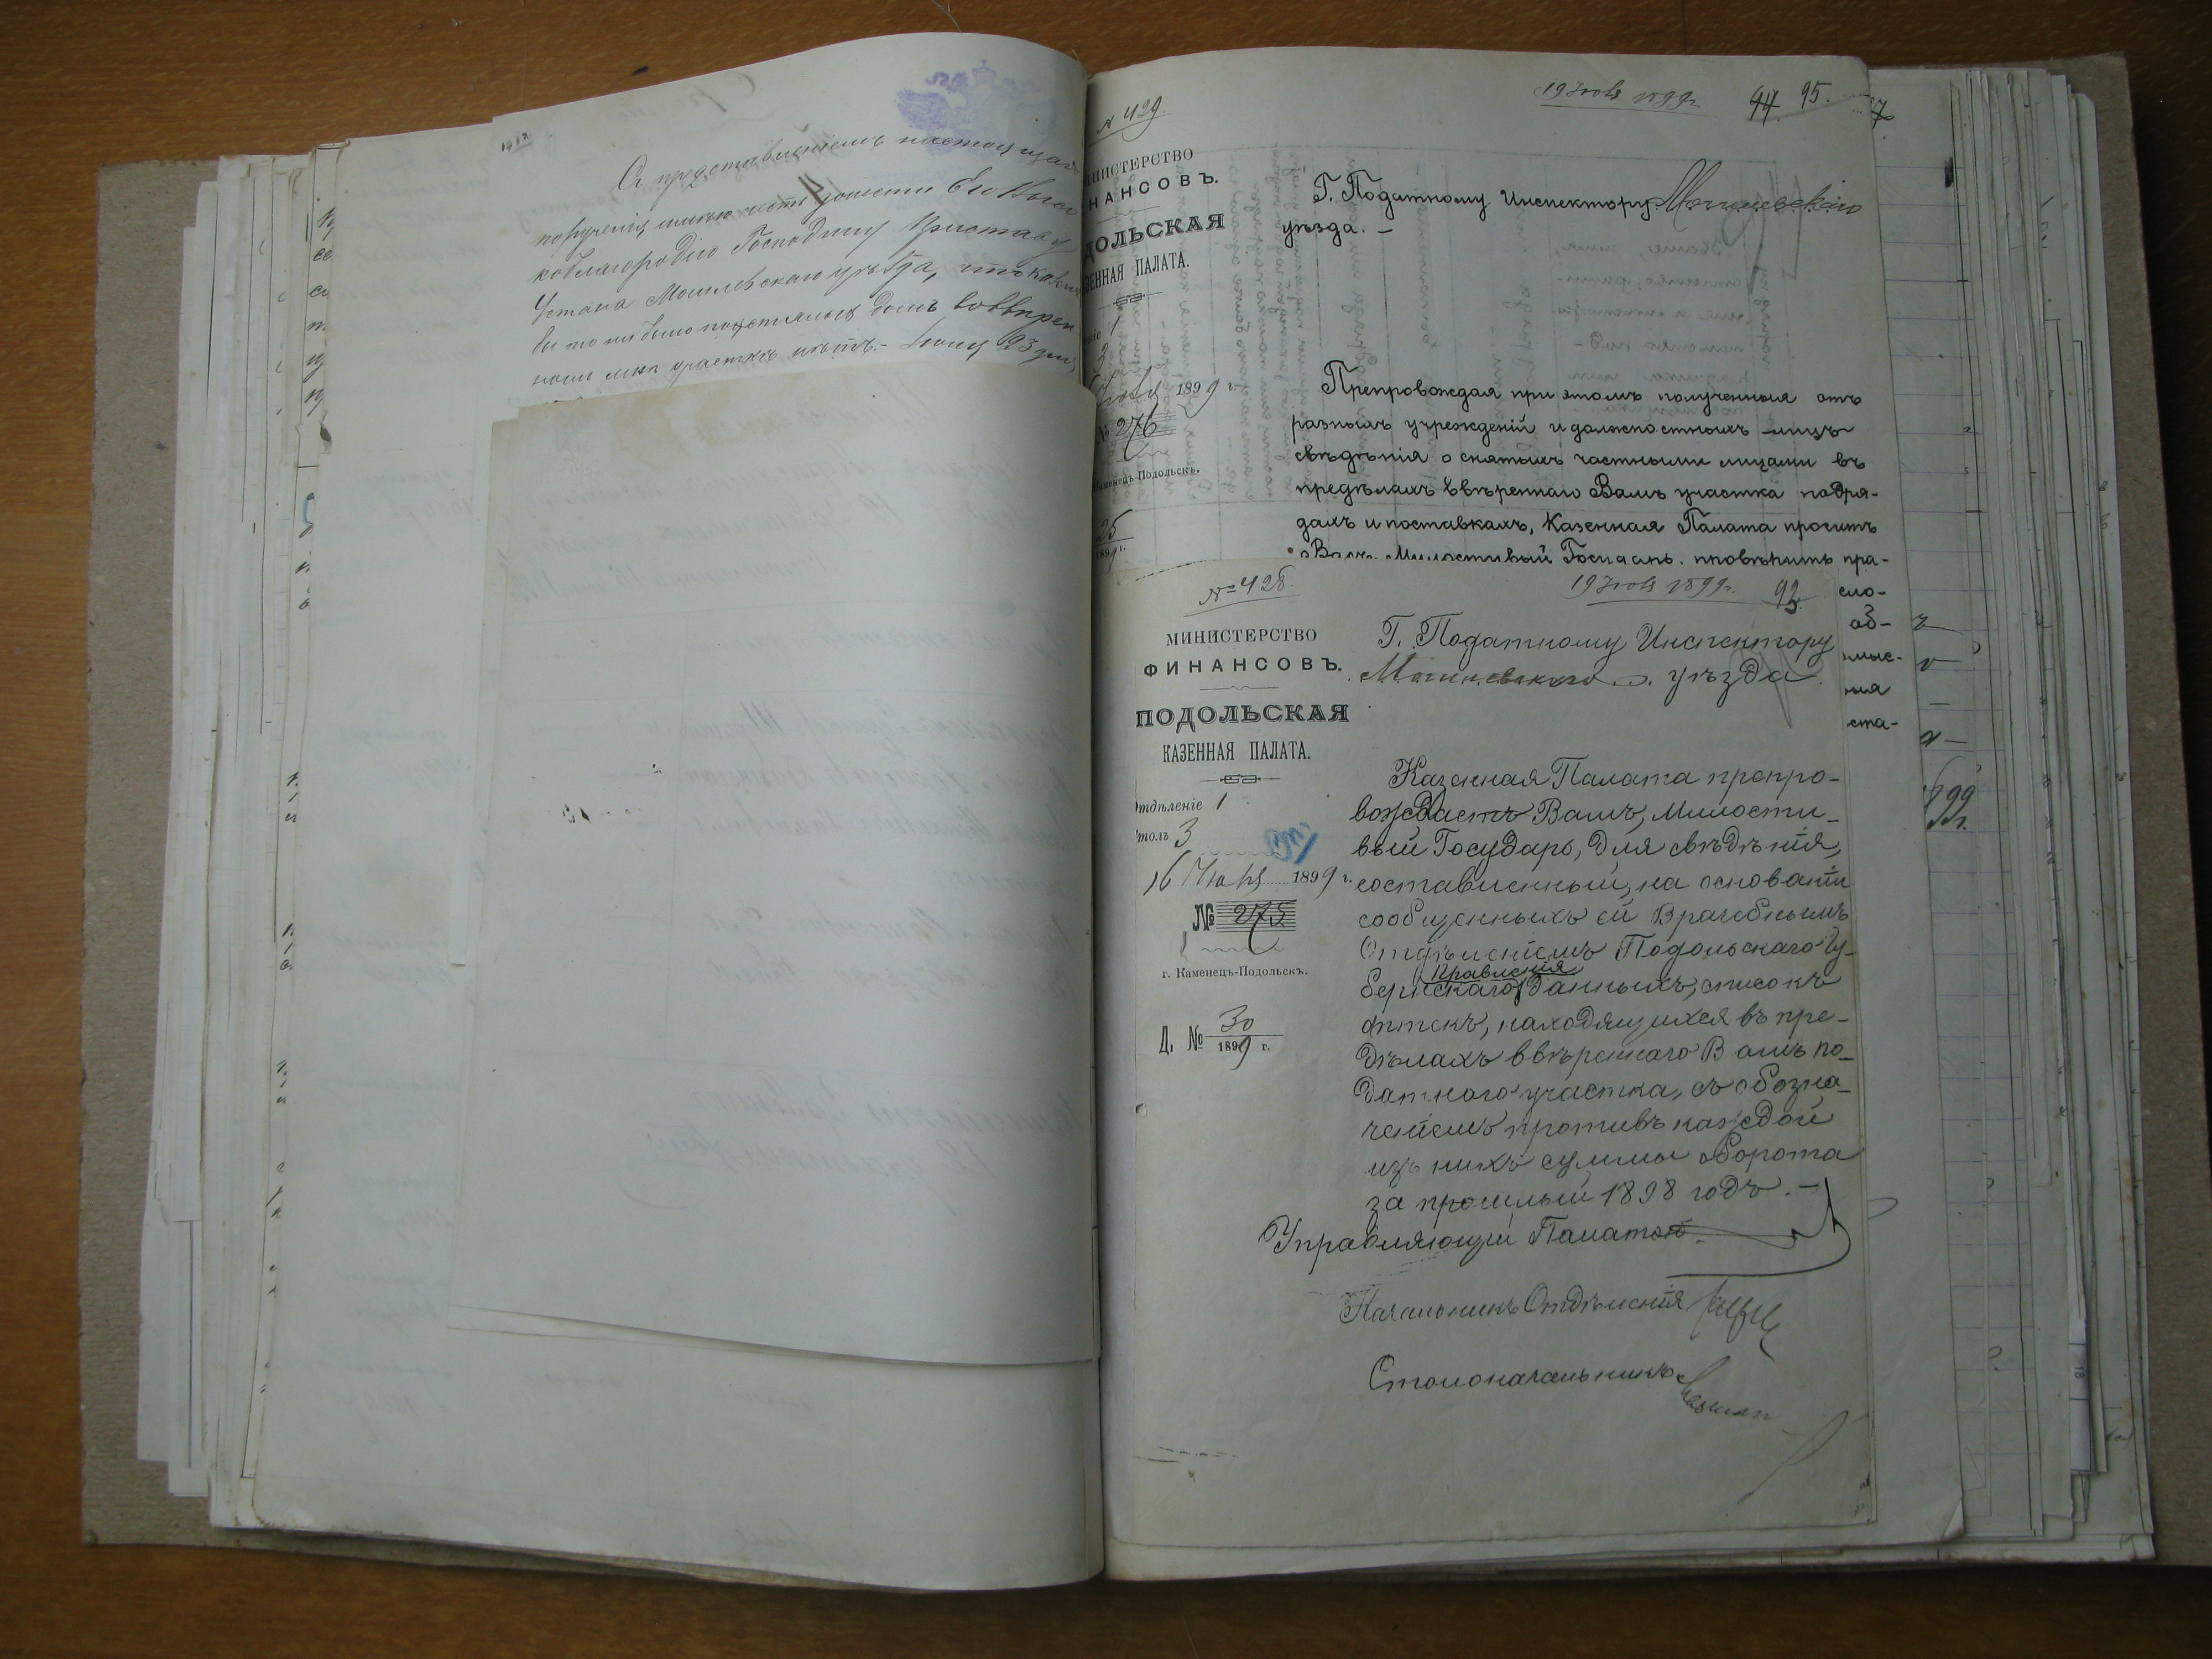 Съ представленіемъ настоящаго
порученія имѣю честь донести Его Высо
коблагородію Господину Приставу
Могилевскаго уѣзда, что
бы то ни было домъ во ввѣрен
номъ мнѣ участкѣ нѣтъ.- 23 дня
№ 429
19 Іюня 1899г.
44 95.
МИНИСТЕРСТВО
НАНСОВЪ.
ДОЛЬСКАЯ
ЕННАЯ ПАЛАТА.
1
3
1899 г.
№ 276
Каменецъ-Подольскъ.
25
1899 г.
Г. Податному Инспектору Могилевскаго
уѣзда. —
Препровождая при этомъ полученныя отъ
разныхъ учрежденій и должностныхъ лицъ
свѣдѣнія о снятыхъ частными лицами въ
предѣлахъ ввѣреннаго Вамъ участка подря-
дахъ и поставкахъ, Казенная Палата проситъ
Васъ, Милостивый Государь, провѣрить пра-
сло-
об-
мыс-
ста-
№ 428
19 Іюня 1899г.
93.
МИНИСТЕРСТВО
ФИНАНСОВЪ.
ПОДОЛЬСКАЯ
КАЗЕННАЯ ПАЛАТА.
тдѣленіе 1
толъ 3
16 Іюня 1899 г.
№ 275
г. Каменецъ-Подольскъ.
Д. № 30
1899 г.
Г. Податному Инспектору
Могилевскаго уѣзда.
Казенная Палата препро-
вождаетъ Вамъ, Милости-
вый Государь, для свѣдѣнія,
составленный, на основаніи
сообщенныхъ ей Врачебнымъ
Отдѣленіемъ Подольскаго Гу-
Правленія
бернскаго данныхъ, списокъ
аптекъ, находящихся въ пре-
дѣлахъ ввѣреннаго Вамъ по-
датного участка, съ обозна-
ченіемъ противъ каждой
изъ нихъ суммы оборота
за прошлый 1898 годъ. —
Управляющій Палатою
Начальникъ Отдѣленія
Столоначальникъ